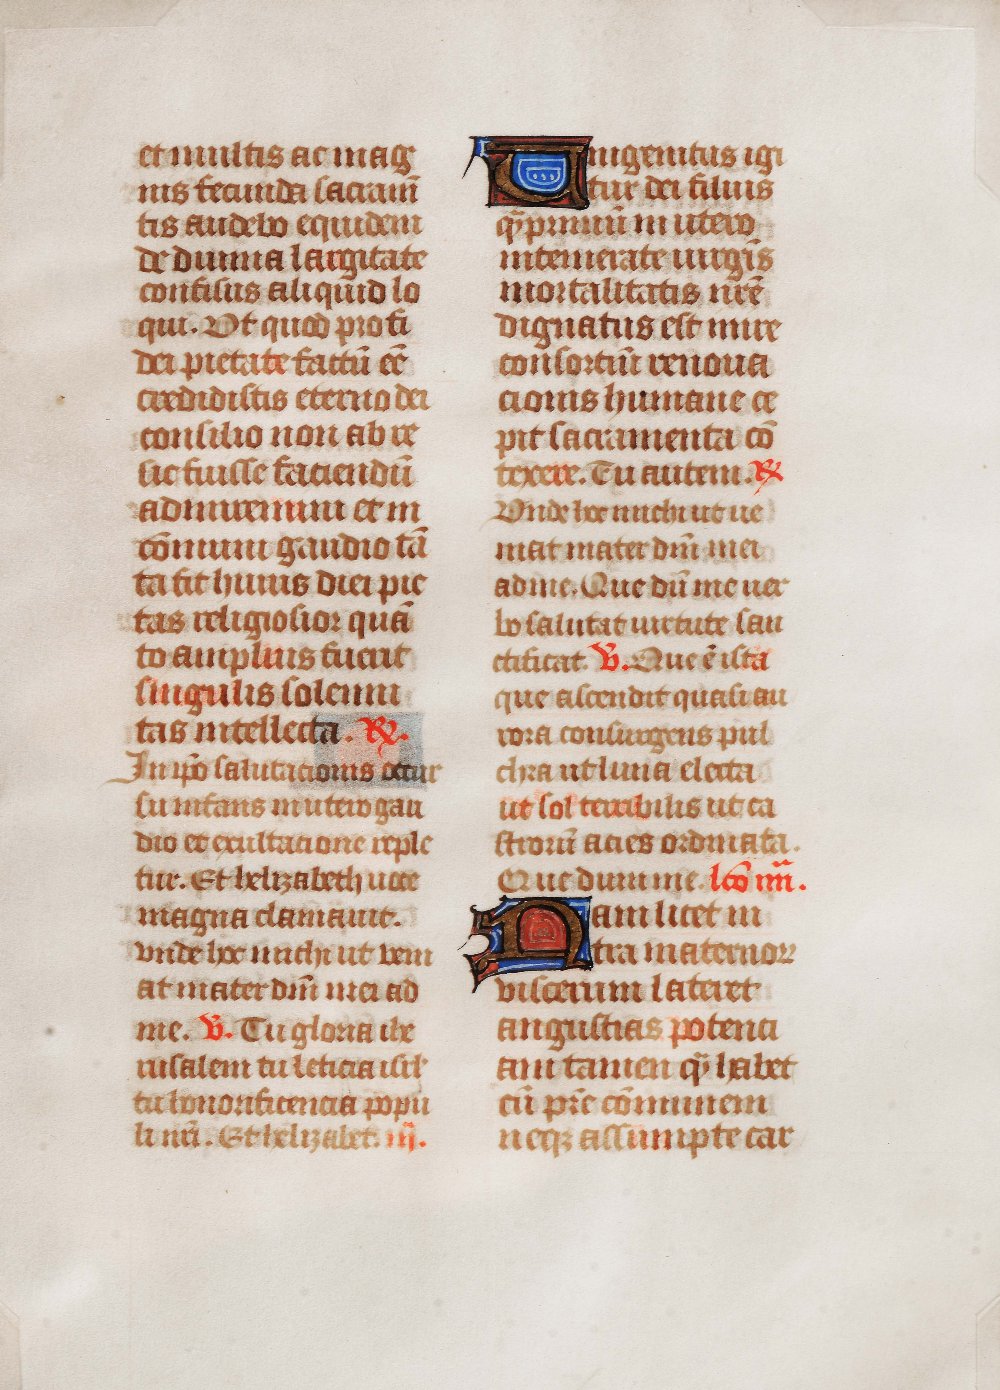 et multis ac mag
nis fecunda sacramē
tis audebo equidem
de diuina largitate
confisus aliquid lo
qui. Ut quod pro fi
dei pietate factū eē
credidistis eterno dei
consilio non ab re
sic fuisse faciendū
ad inuenium et in
cōmuni gaudio tā
ta fit huius diei pie
tas religiosior quā
to amplius fuerit
singulis solemni
tas intellecta. ℟.
In ip̄o salutacionis cetur
su infans in utero gau
dio et exultacione reple
tur. Et helizabeth uoce
magna clamauit.
vnde hoc michi ut veni
at mater dn̄i mei ad
me. ℣. Tu gloria ihe
rusalem tu leticia isr̄l
tu honorificencia popu
li nr̄i. Et helizabet. iij.
Unigenitus igi
tur dei filius
q̄ primū in utero
intemerate uirgīs
mortalitatis nr̄e
dignatus est inire
consorciū renoua
cionis humane ce
pit sacramenta cō
texere. Tu autem. ℟
Vnde hoc michi ut ue
niat mater dn̄i mei
ad me. Que dū me uer
bo salutat uirtute san
ctificat. ℣. Que ē ista
que ascendit quasi au
rora consurgens pul
chra ut luna electa
ut sol terribilis ut ca
strorū acies ordinata.
Que dum me. lcō iiii.
Nam licet in
tra maternoꝝ
viscerum lateret
angustias potenci
am tamen q̄ habet
cū pr̄e cōmunem
neqꝫ assumpte car